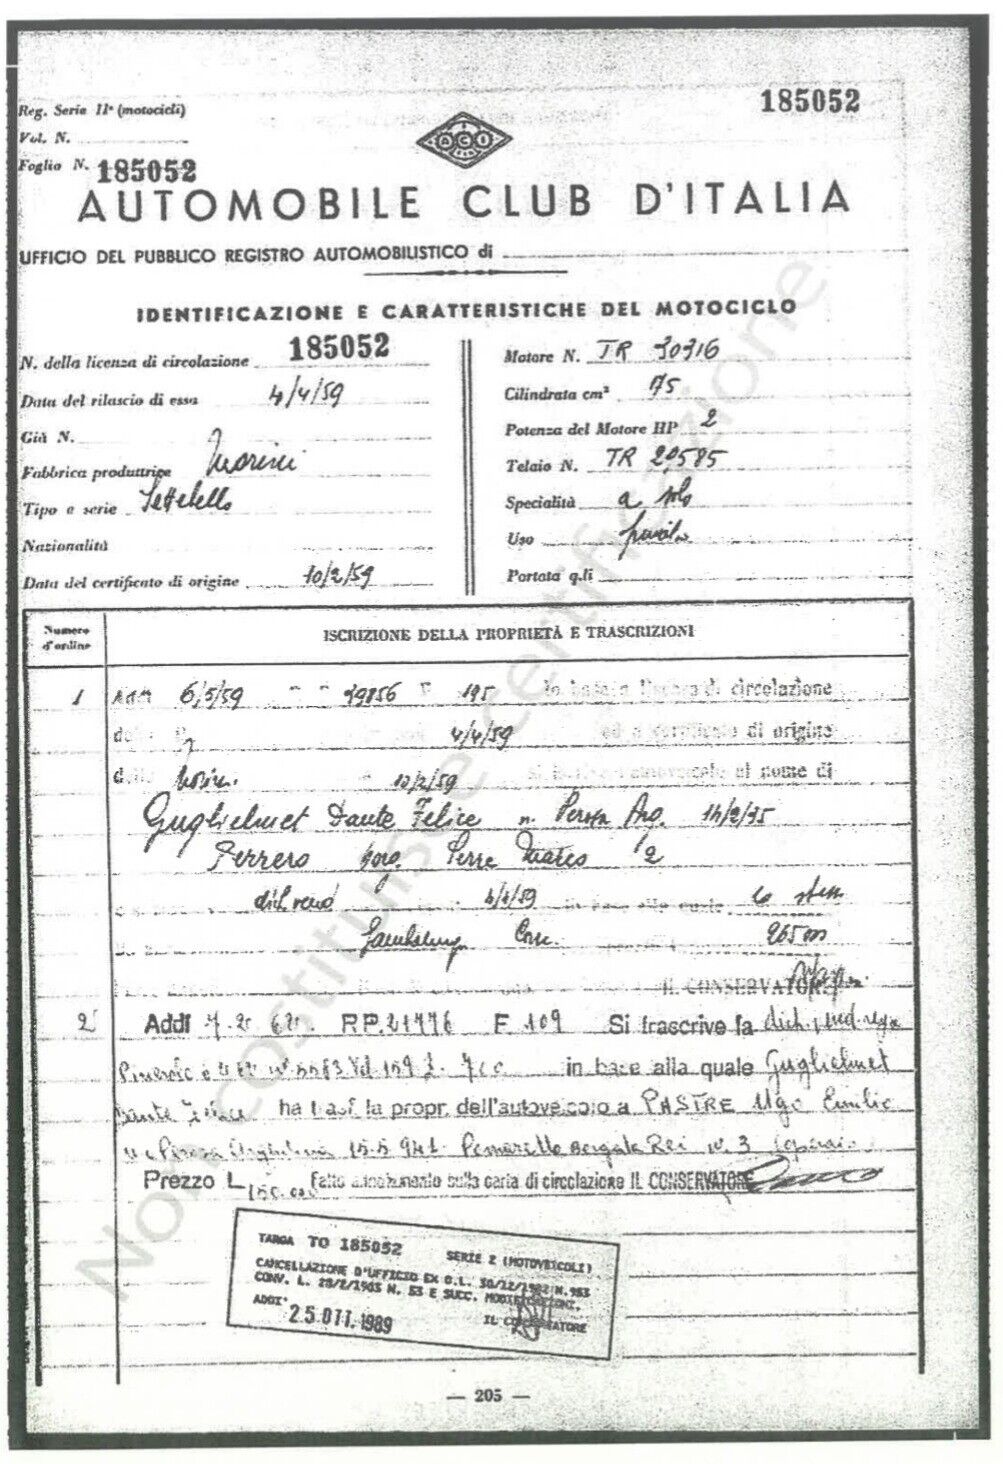 185052
Reg. Serie IIª (motocicli)
Vol. N.
Foglio N. 185052
ACI
AUTOMOBILE CLUB D'ITALIA
UFFICIO DEL PUBBLICO REGISTRO AUTOMOBILISTICO di
IDENTIFICAZIONE E CARATTERISTICHE DEL MOTOCICLO
N. della licenza di circolazione 185052
Data del rilascio di essa 4/4/59
Già N.
Fabbrica produttrice Morini
Tipo e serie Settebello
Nazionalità
Data del certificato di origine 10/2/59
Motore N. TR 30716
Cilindrata cm³ 175
Potenza del Motore HP 2
Telaio N. TR 20585
Specialità a solo
Uso
Portata q.li
Numero d'ordine
ISCRIZIONE DELLA PROPRIETÀ E TRASCRIZIONI
1 Addì 6/5/59 39856 195 In base a licenza di circolazione
4/4/59 ed a certificato di origine
Morini 10/2/59 al nome di
Guglielmet Dante Felice n. Perosa Arg. 14/2/35
Ferrero
4/4/59
IL CONSERVATORE
2 Addì 7.2 62 R.P. 21776 F 109 Si trascrive la
in base alla quale Guglielmet
Dante Felice ha trasf. la propr. dell'autoveicolo a PASTRE Ugo Emilio
15.5.941 Pomaretto
Prezzo L. 150.000 fatto annotamento sulla carta di circolazione IL CONSERVATORE
TARGA TO 185052 SERIE 2 (MOTOVEICOLI)
CANCELLAZIONE D'UFFICIO EX D.L. 30/12/1982 N. 953
CONV. L. 28/2/1983 N. 53 E SUCC. MODIFICAZIONI.
ADDI' 25 OTT. 1989 IL CONSERVATORE
Non costituisce certificazione
— 205 —